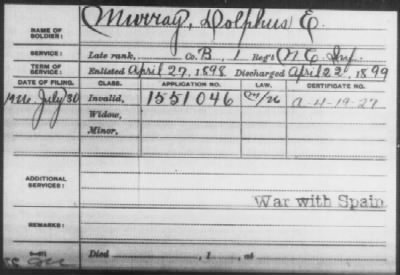 NAME OF SOLDIER: Murray, Dolphus E.
SERVICE: Late rank, Co. B, 1 Reg't N C Inf.
TERM OF SERVICE: Enlisted April 27, 1898 Discharged April 22, 1899
DATE OF FILING. CLASS. APPLICATION NO. LAW. CERTIFICATE NO.
July 30 Invalid, 1551046 A-4-19-27
Widow,
Minor,
ADDITIONAL SERVICES:
War with Spain
REMARKS:
Died , 1 , at